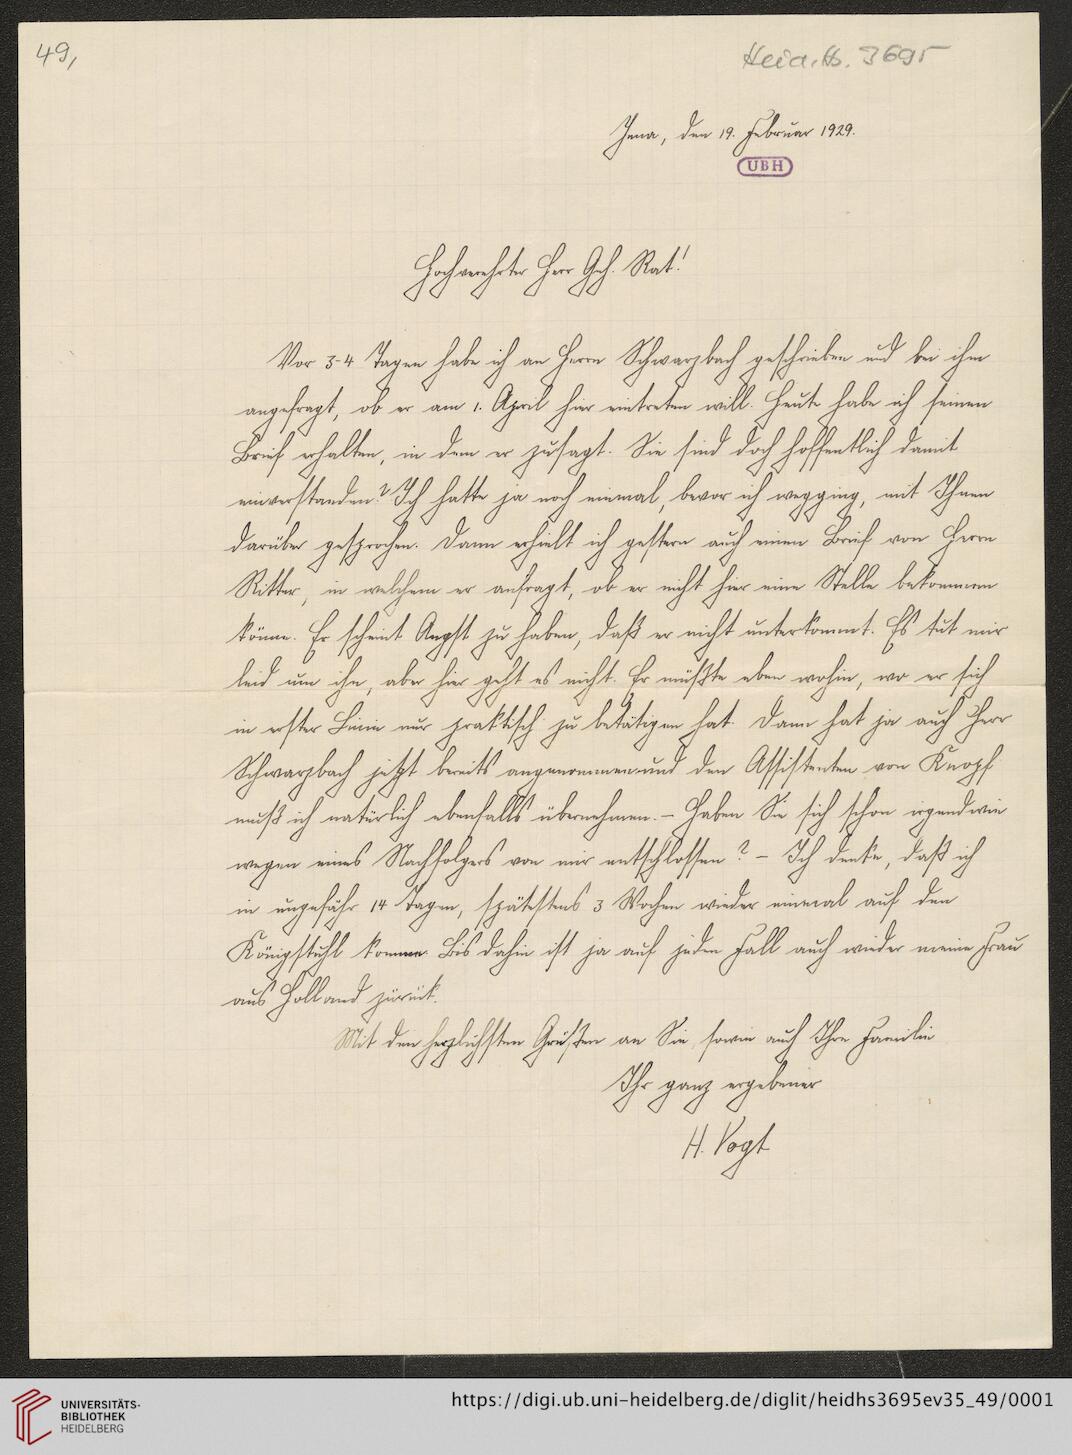 49,
Heid. Hs. 3695
Jena, den 19. Februar 1929.
UBH
Hochverehrter Herr Geh. Rat!
Vor 3-4 Tagen habe ich an Herrn Schwarzbach geschrieben und bei ihm
angefragt, ob er am 1. April hier eintreten will. Heute habe ich seinen
Brief erhalten, in dem er zusagt. Sie sind doch hoffentlich damit
einverstanden? Ich hatte ja noch einmal, bevor ich wegging, mit Ihnen
darüber gesprochen. Dann erhielt ich gestern auch einen Brief von Herrn
Ritter, in welchem er anfragt, ob er nicht hier eine Stelle bekommen
könne. Er scheint Angst zu haben, daß er nicht unterkommt. Es tut mir
leid um ihn, aber hier geht es nicht. Er müßte eben wohin, wo er sich
in erster Linie nur praktisch zu betätigen hat. Dann hat ja auch Herr
Schwarzbach jetzt bereits angenommen und den Assistenten von Knopf
muß ich natürlich ebenfalls übernehmen. – Haben Sie sich schon irgendwie
wegen eines Nachfolgers von mir entschlossen? – Ich denke, daß ich
in ungefähr 14 Tagen, spätestens 3 Wochen wieder einmal auf den
Königstuhl komme. Bis dahin ist ja auf jeden Fall auch wieder meine Frau
aus Holland zurück.
Mit den herzlichsten Grüßen an Sie, sowie auch Ihre Familie
Ihr ganz ergebener
H. Vogt
UNIVERSITÄTS-
BIBLIOTHEK
HEIDELBERG
https://digi.ub.uni-heidelberg.de/diglit/heidhs3695ev35_49/0001